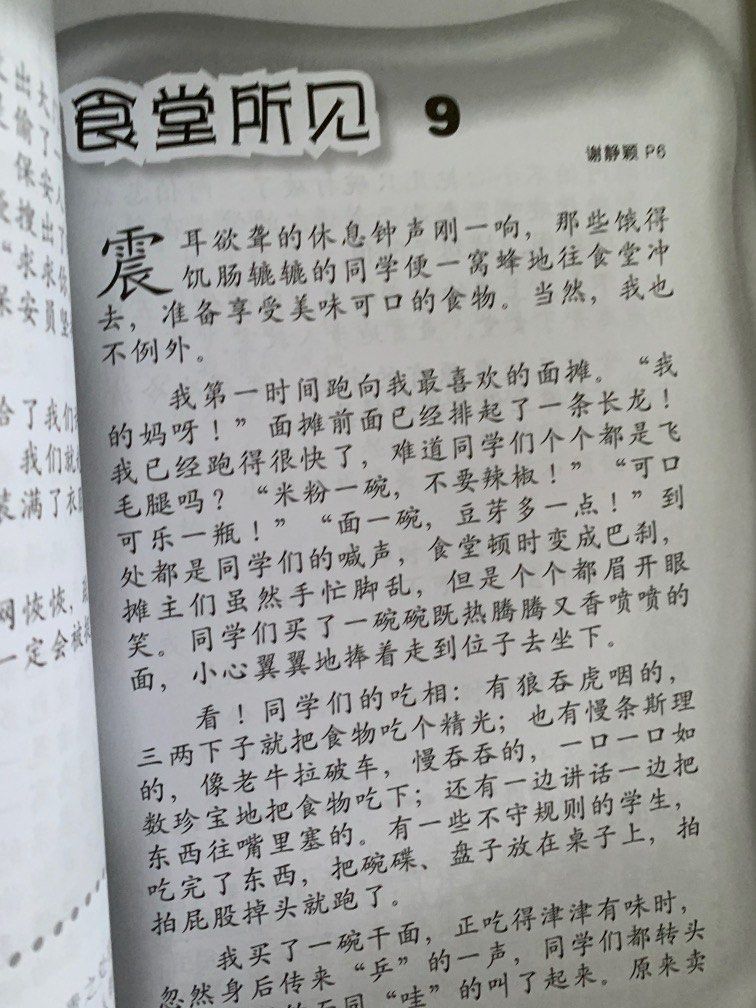 食堂所见 9
谢静颖 P6
震耳欲聋的休息钟声刚一响，那些饿得
饥肠辘辘的同学便一窝蜂地往食堂冲
去，准备享受美味可口的食物。当然，我也
不例外。
我第一时间跑向我最喜欢的面摊。“我
的妈呀！”面摊前面已经排起了一条长龙！
我已经跑得很快了，难道同学们个个都是飞
毛腿吗？“米粉一碗，不要辣椒！”“可口
可乐一瓶！”“面一碗，豆芽多一点！”到
处都是同学们的喊声，食堂顿时变成巴刹，
摊主们虽然手忙脚乱，但是个个都眉开眼
笑。同学们买了一碗碗既热腾腾又香喷喷的
面，小心翼翼地捧着走到位子去坐下。
看！同学们的吃相：有狼吞虎咽的，
三两下子就把食物吃个精光；也有慢条斯理
的，像老牛拉破车，慢吞吞的，一口一口如
数珍宝地把食物吃下；还有一边讲话一边把
东西往嘴里塞的。有一些不守规则的学生，
吃完了东西，把碗碟、盘子放在桌子上，拍
拍屁股掉头就跑了。
我买了一碗干面，正吃得津津有味时，
忽然身后传来“乒”的一声，同学们都转头
不同“哇”的叫了起来。原来卖
出大
偷了一
保安人
搜出了
“求求你
保安員坚
给了我们
我们就
装满了衣
网恢恢，
一定会被